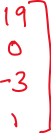 19
0
-3
1